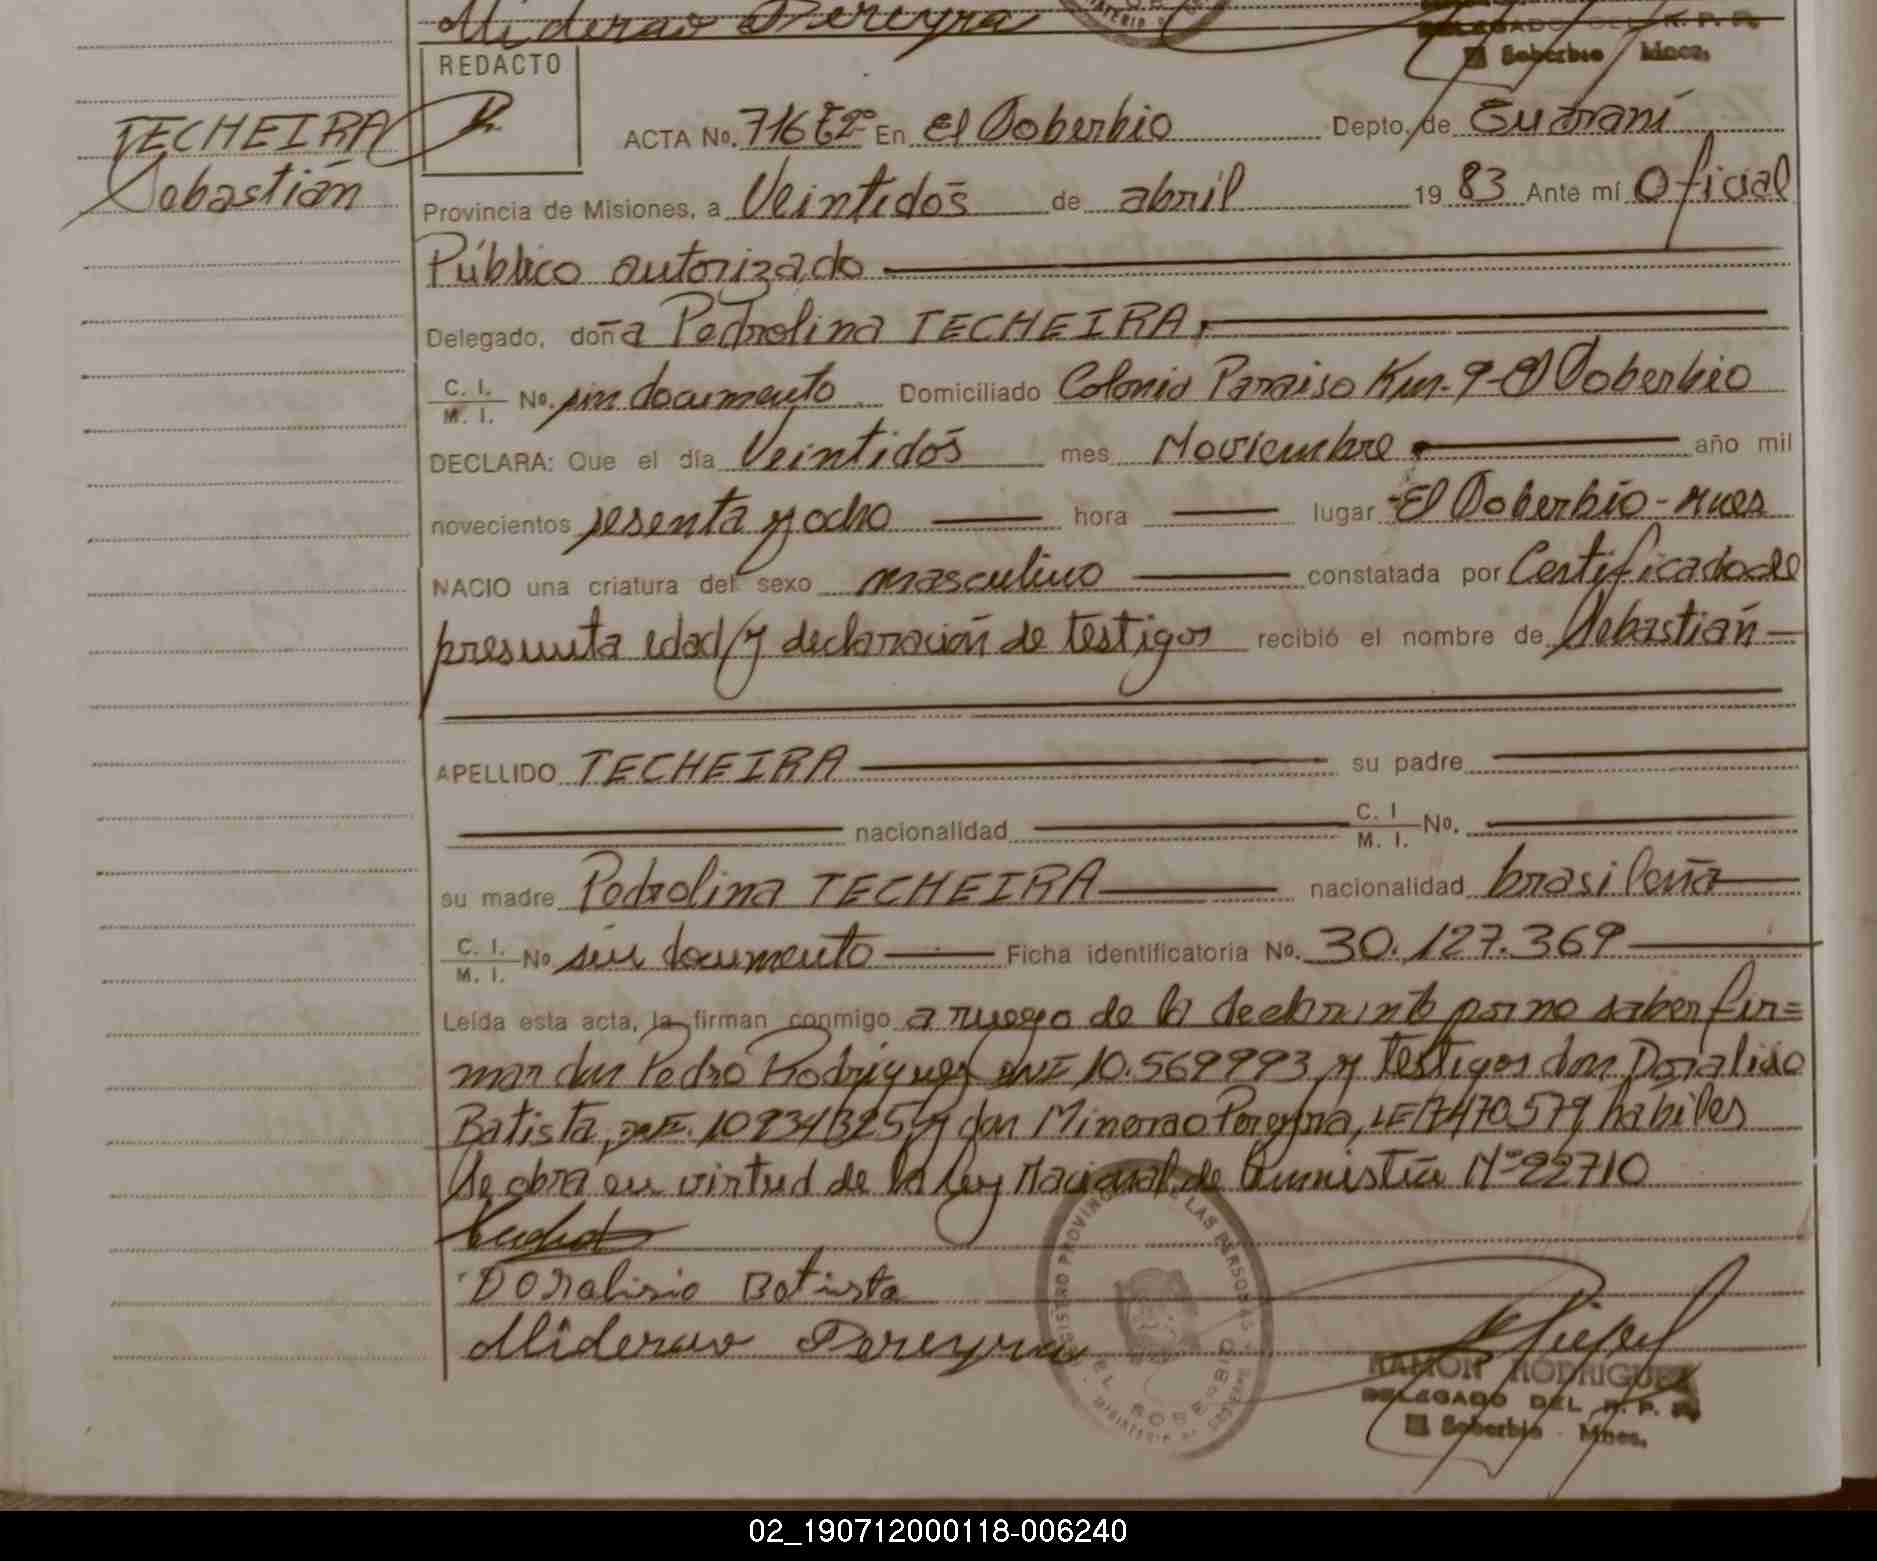 Miderao Pereyra
DELEGADO DEL R. P. P.
El Soberbio Mnes.
REDACTO
TECHEIRA
Sebastián
ACTA No. 716 Tº2º En El Soberbio Depto. de Guaraní
Provincia de Misiones, a Veintidós de abril 19 83 Ante mí Oficial
Público autorizado
Delegado, doña Pedrolina TECHEIRA,
C. I. / M. I. No. sin documento Domiciliado Colonia Paraiso Km. 9 - El Soberbio
DECLARA: Que el día Veintidós mes Noviembre año mil
novecientos sesenta y ocho hora lugar El Soberbio - Mnes
NACIO una criatura del sexo masculino constatada por Certificado de
presunta edad y declaración de testigos recibió el nombre de Sebastián
APELLIDO TECHEIRA su padre
nacionalidad C. I / M. I. No.
su madre Pedrolina TECHEIRA nacionalidad brasileña
C. I. / M. I. No sin documento Ficha identificatoria No. 30.127.369
Leída esta acta, la firman conmigo a ruego de la declarante por no saber fir=
mar don Pedro Rodriguez DNI 10.569993 y testigos don Doralicio
Batista, 10934325 y don Minerao Pereyra, LE 7470579 habiles
Se obra en virtud de la Ley Nacional de Amnistía Nº 22710
Doralisio Batista
Miderao Pereyra
REGISTRO PROVINCIAL DE LAS PERSONAS
EL SOBERBIO
MINISTERIO DE GOBIERNO
RAMON RODRIGUEZ
DELEGADO DEL R. P. P.
El Soberbio - Mnes.
02_190712000118-006240